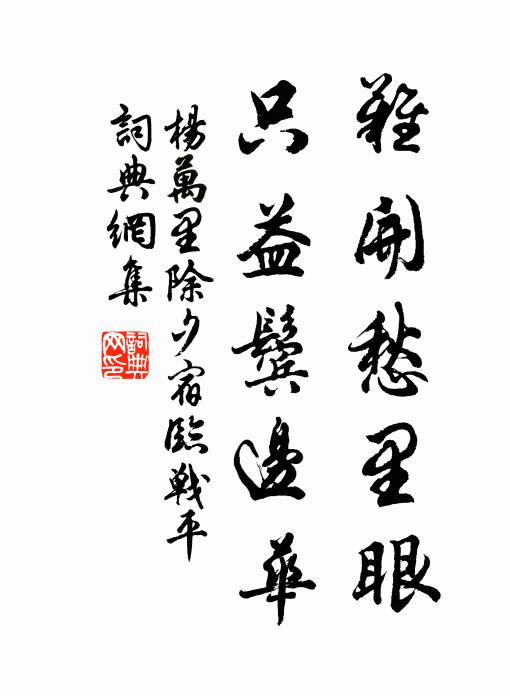 難開愁里眼
只益鬢邊華
楊萬里除夕宿臨戰平
詞典網集
詞典网印